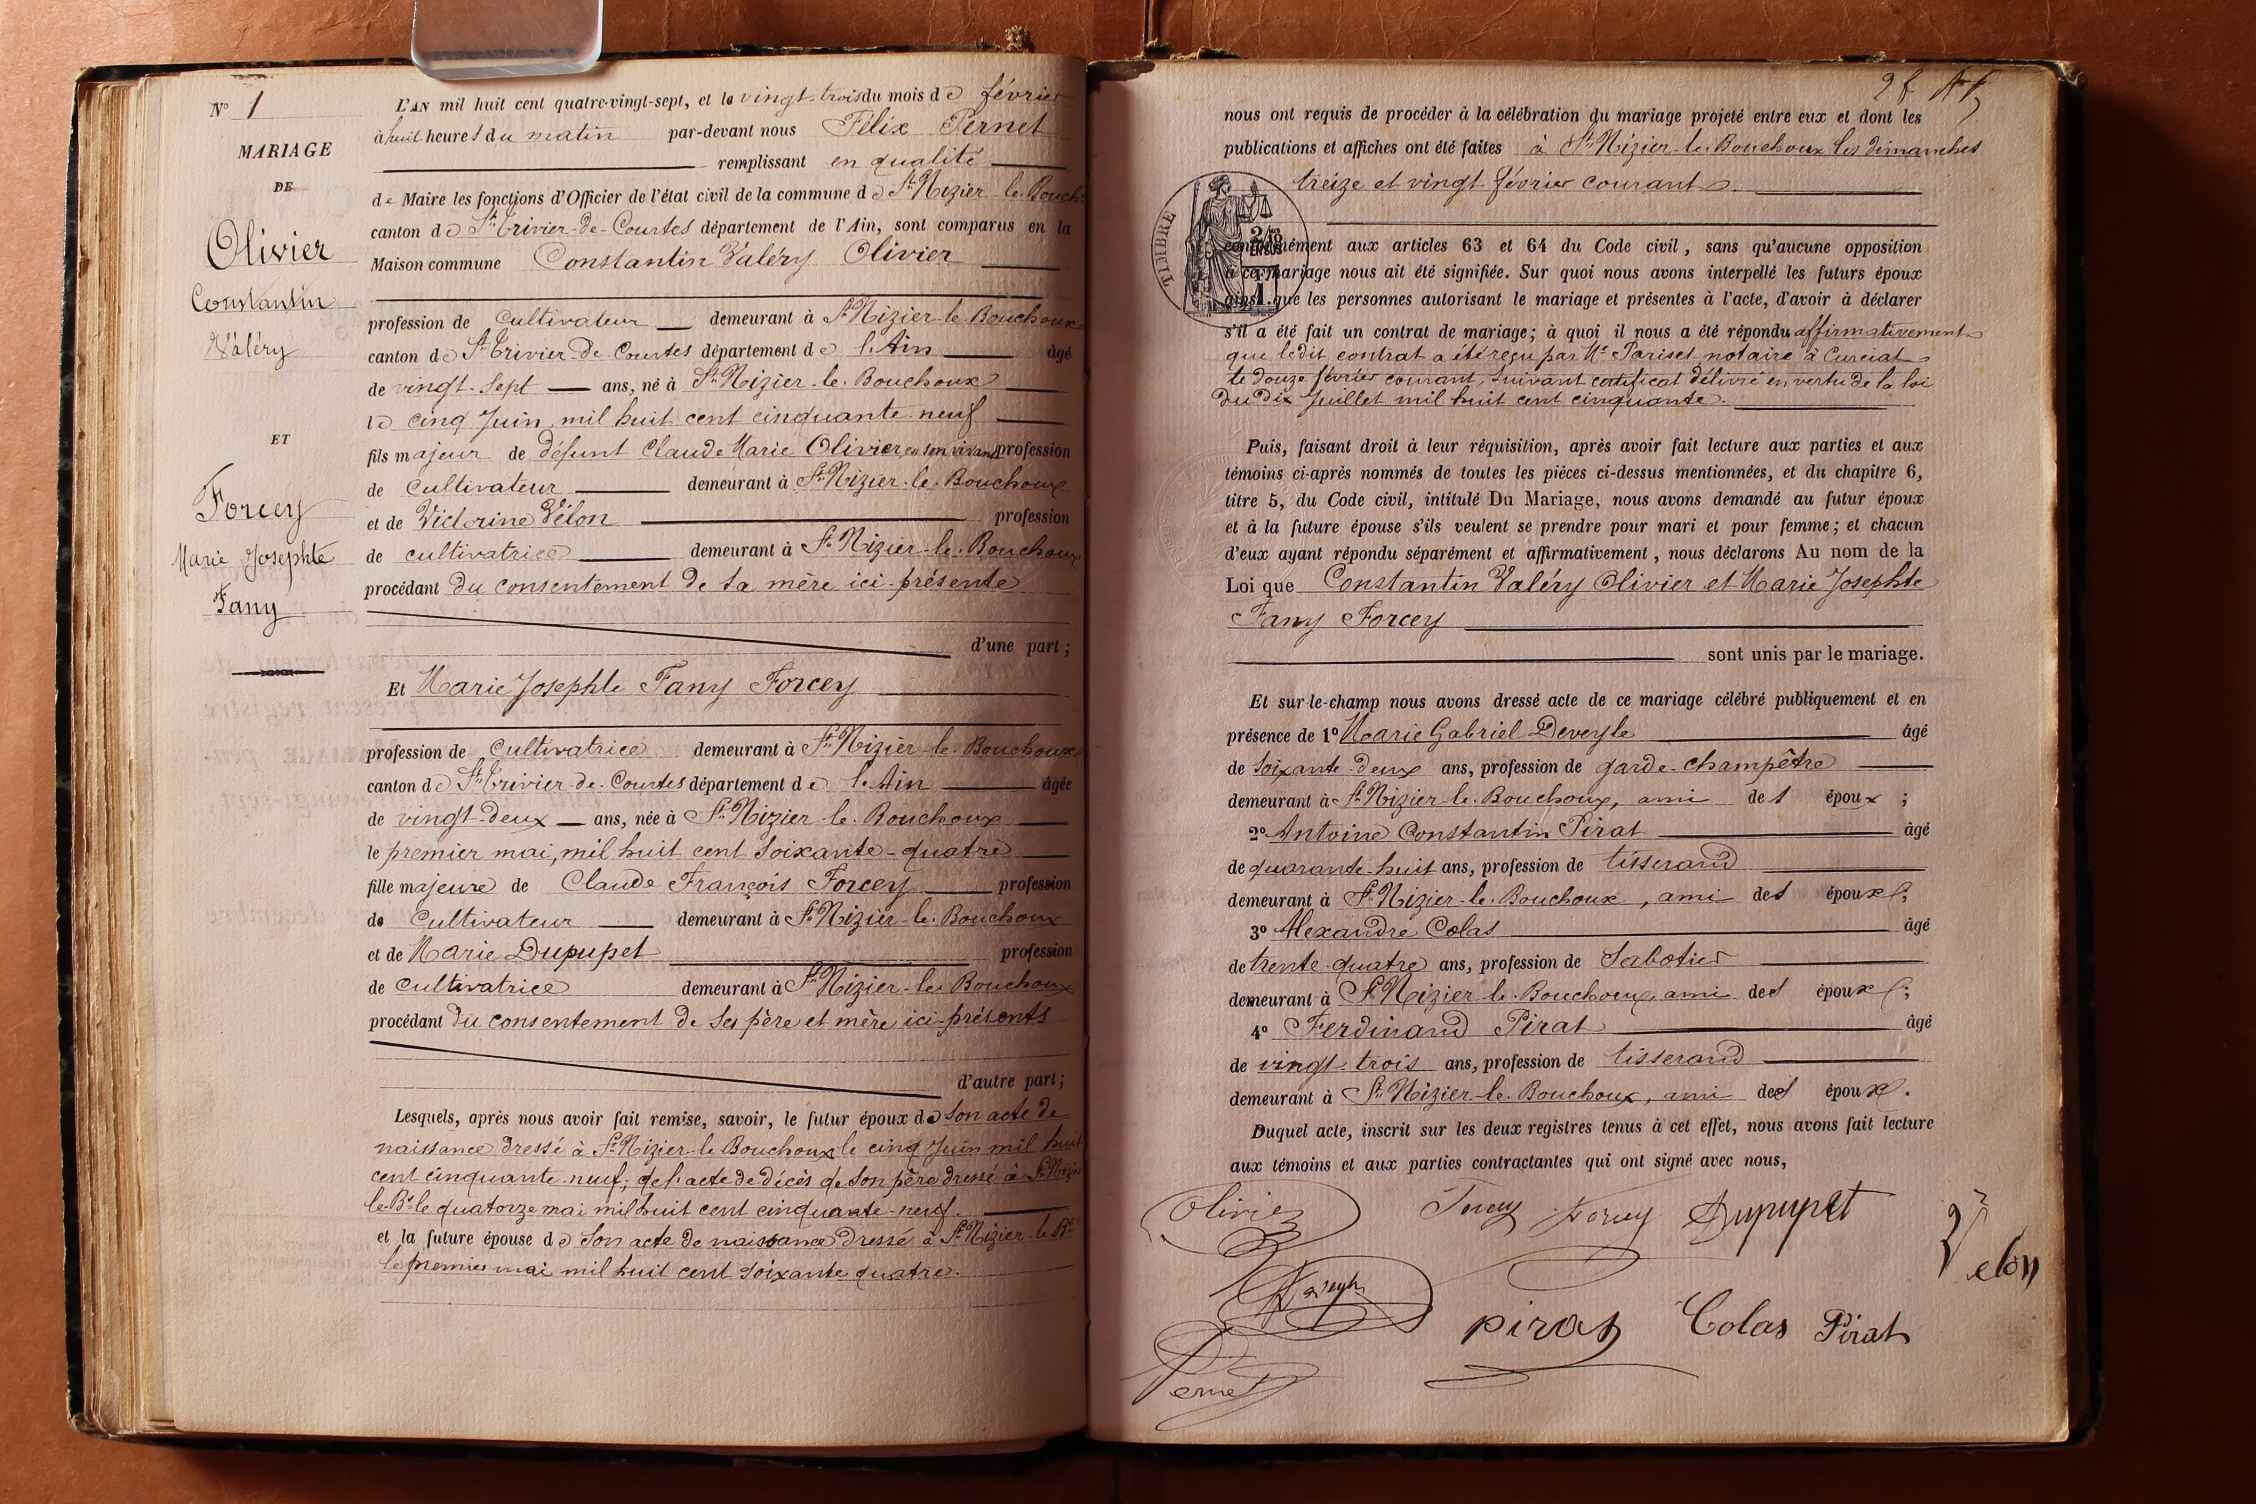 N° 1
MARIAGE
DE
Olivier
Constantin
Valéry
ET
Forcey
Marie Josephte
Fany
L'AN mil huit cent quatre-vingt-sept, et le vingt-trois du mois de février
à huit heures du matin par-devant nous Félix Pernet
remplissant en qualité
de Maire les fonctions d'Officier de l'état civil de la commune de St Nizier-le-Bouch
canton de St Trivier-de-Courtes département de l'Ain, sont comparus en la
Maison commune Constantin Valéry Olivier
profession de cultivateur demeurant à St Nizier-le-Bouchoux
canton de St Trivier-de-Courtes département de l'Ain âgé
de vingt-sept ans, né à St Nizier-le-Bouchoux
le cinq Juin mil huit cent cinquante-neuf
fils majeur de défunt Claude Marie Olivier, en son vivant profession
de cultivateur demeurant à St Nizier-le-Bouchoux
et de Victorine Vélon profession
de cultivatrice demeurant à St Nizier-le-Bouchoux
procédant du consentement de sa mère ici-présente
d'une part ;
Et Marie Josephte Fany Forcey
profession de cultivatrice demeurant à St Nizier-le-Bouchoux
canton de St Trivier-de-Courtes département de l'Ain âgée
de vingt-deux ans, née à St Nizier-le-Bouchoux
le premier mai, mil huit cent soixante-quatre
fille majeure de Claude François Forcey profession
de cultivateur demeurant à St Nizier-le-Bouchoux
et de Marie Dupupet profession
de cultivatrice demeurant à St Nizier-le-Bouchoux
procédant du consentement de ses père et mère ici-présents
d'autre part ;
Lesquels, après nous avoir fait remise, savoir, le futur époux de son acte de
naissance dressé à St Nizier-le-Bouchoux le cinq Juin mil huit
cent cinquante-neuf; de l'acte de décès de son père dressé à St Nizier
le-Bx le quatorze mai mil huit cent cinquante-neuf.
et la future épouse de son acte de naissance dressé à St Nizier-le-Bx
le premier mai mil huit cent soixante quatre.
nous ont requis de procéder à la célébration du mariage projeté entre eux et dont les
publications et affiches ont été faites à St Nizier-le-Bouchoux les dimanches
treize et vingt février courant.
TIMBRE
conformément aux articles 63 et 64 du Code civil, sans qu'aucune opposition
à ce mariage nous ait été signifiée. Sur quoi nous avons interpellé les futurs époux
ainsi que les personnes autorisant le mariage et présentes à l'acte, d'avoir à déclarer
s'il a été fait un contrat de mariage ; à quoi il nous a été répondu affirmativement
que ledit contrat a été reçu par Me Pariset notaire à Curciat
le douze février courant, suivant certificat délivré en vertu de la loi
du dix Juillet mil huit cent cinquante.
Puis, faisant droit à leur réquisition, après avoir fait lecture aux parties et aux
témoins ci-après nommés de toutes les pièces ci-dessus mentionnées, et du chapitre 6,
titre 5, du Code civil, intitulé Du Mariage, nous avons demandé au futur époux
et à la future épouse s'ils veulent se prendre pour mari et pour femme ; et chacun
d'eux ayant répondu séparément et affirmativement, nous déclarons Au nom de la
Loi que Constantin Valéry Olivier et Marie Josephte
Fany Forcey
sont unis par le mariage.
Et sur-le-champ nous avons dressé acte de ce mariage célébré publiquement et en
présence de 1° Marie Gabriel Deveyle âgé
de soixante-deux ans, profession de garde-champêtre
demeurant à St Nizier-le-Bouchoux, ami des époux ;
2° Antoine Constantin Pirat âgé
de quarante-huit ans, profession de tisserand
demeurant à St Nizier-le-Bouchoux, ami des époux ;
3° Alexandre Colas âgé
de trente-quatre ans, profession de sabotier
demeurant à St Nizier-le-Bouchoux, ami des époux ;
4° Ferdinand Pirat âgé
de vingt-trois ans, profession de tisserand
demeurant à St Nizier-le-Bouchoux, ami des époux.
Duquel acte, inscrit sur les deux registres tenus à cet effet, nous avons fait lecture
aux témoins et aux parties contractantes qui ont signé avec nous,
Olivier Forcey Forcey Dupupet Velon
pirat Colas Pirat
Pernet